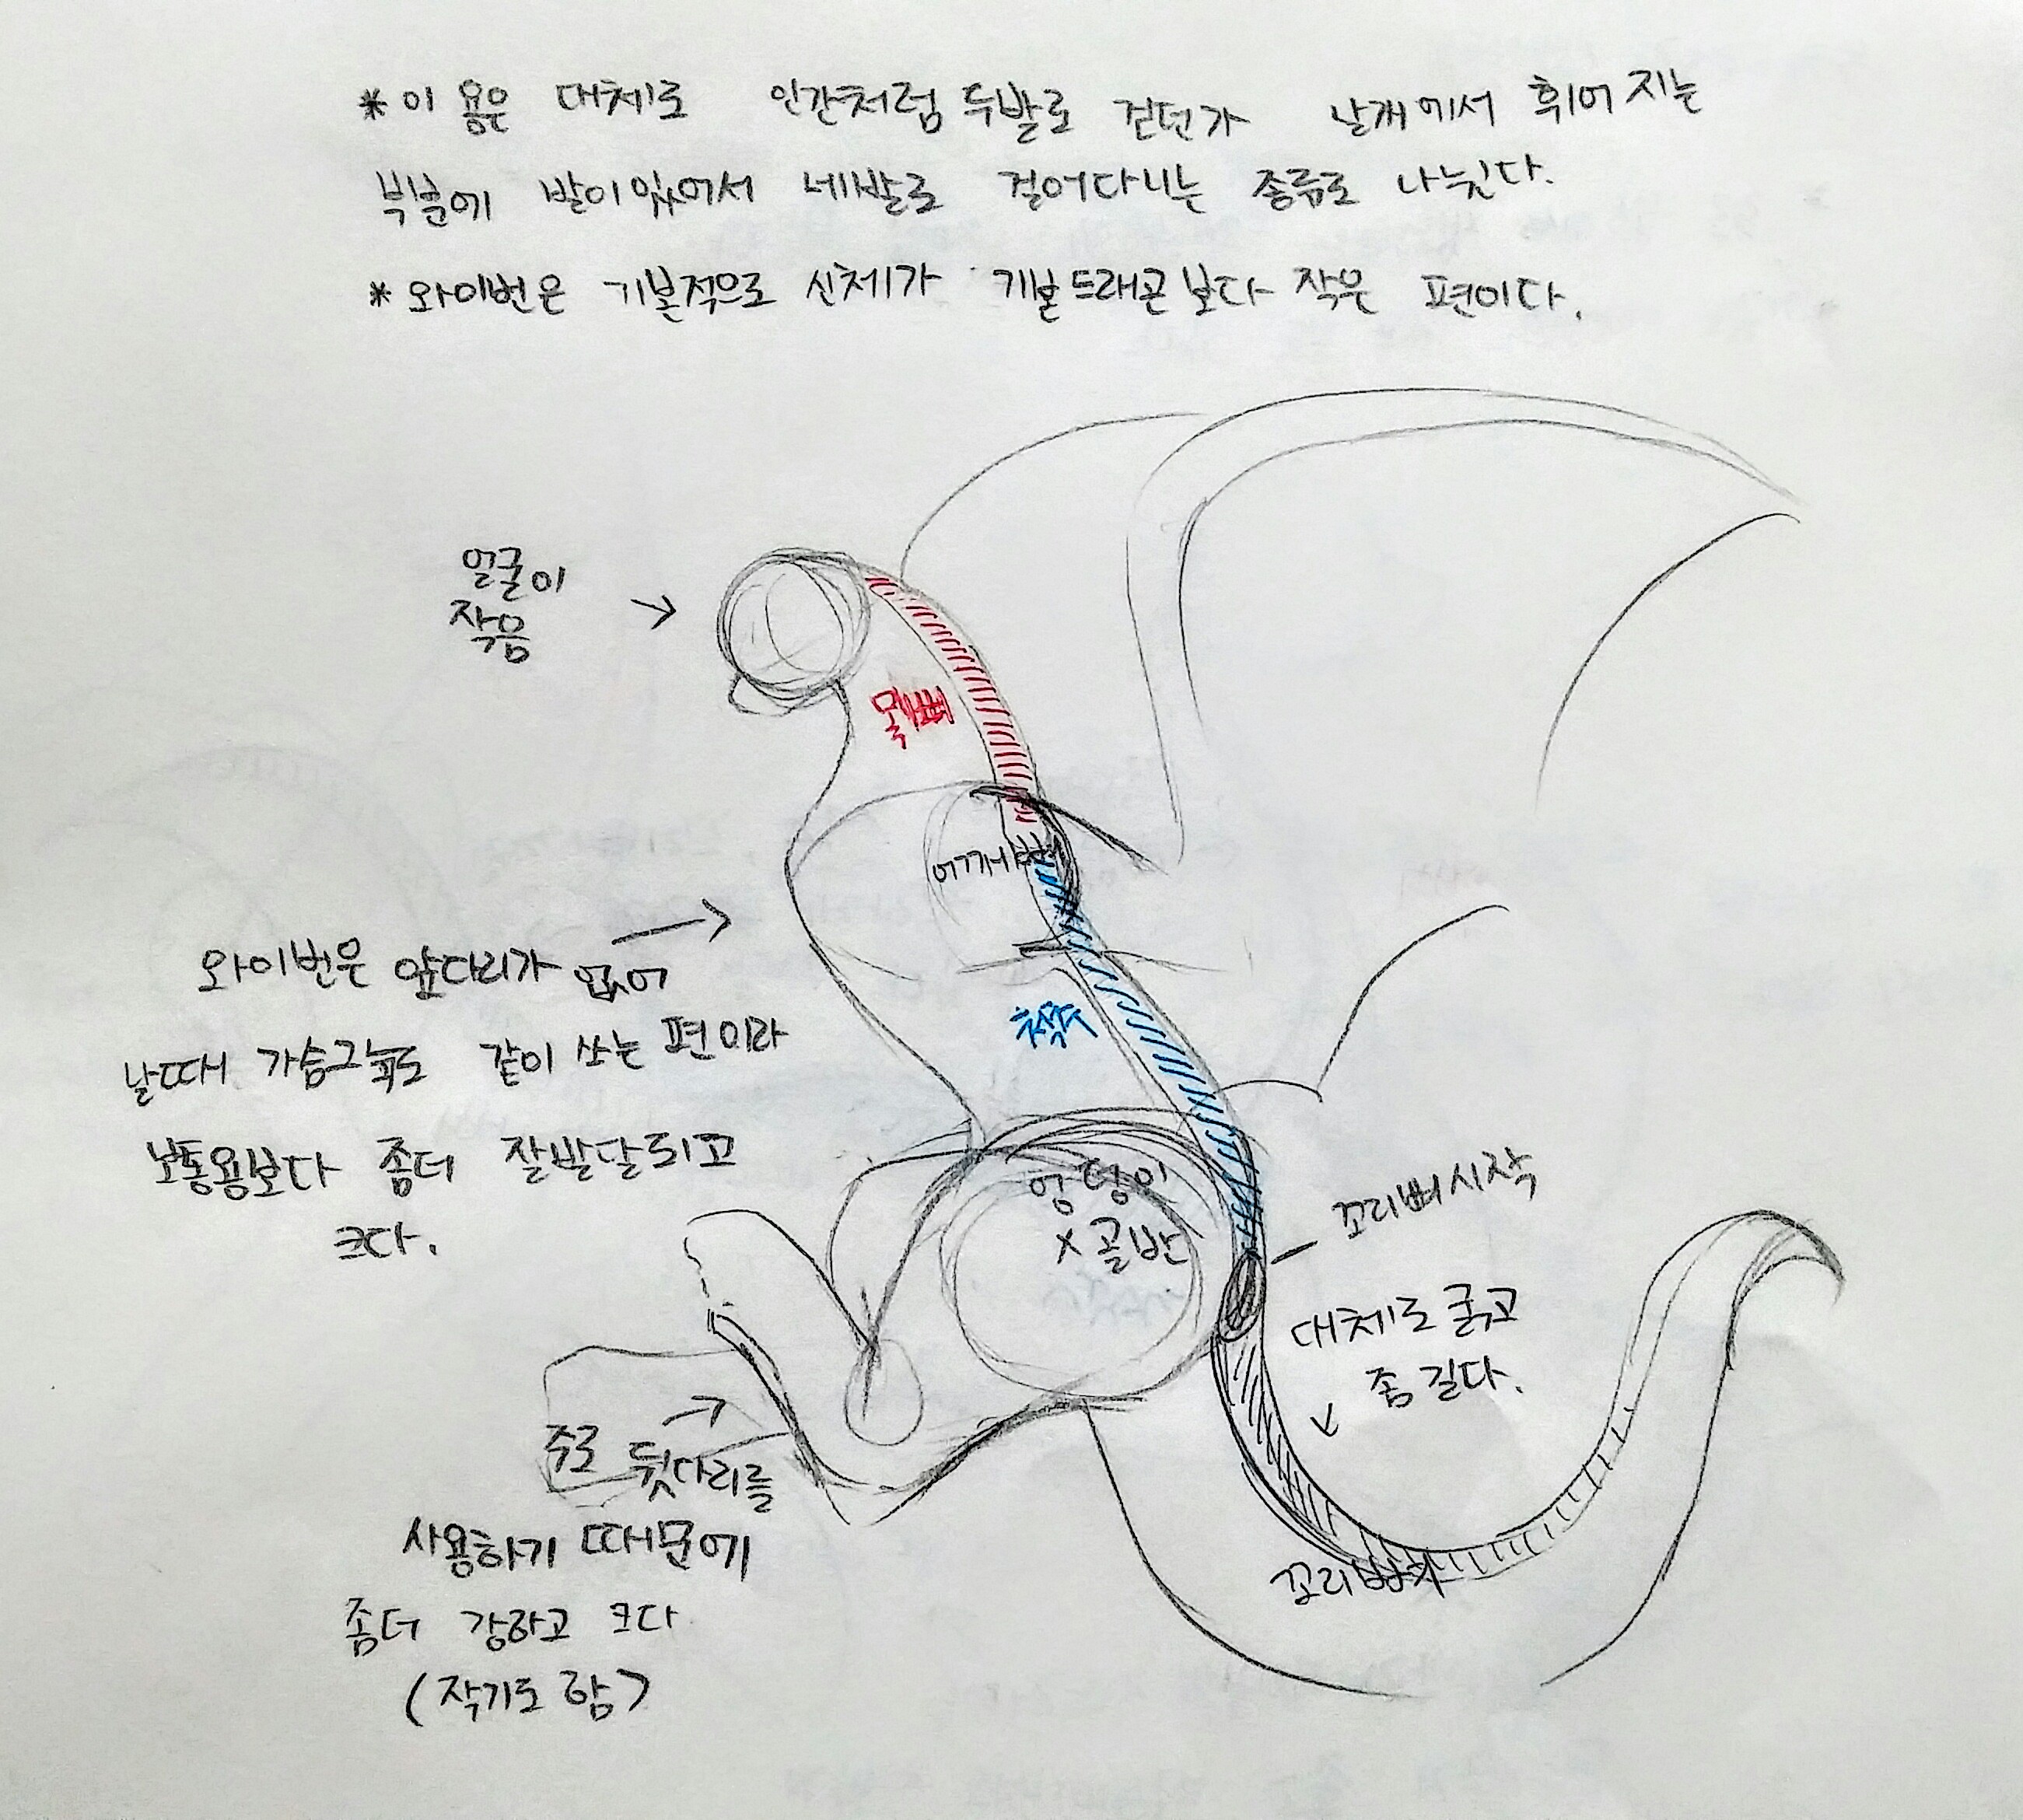 *이 용은 대체로 인간처럼 두발로 걷던가 날개에서 휘어지는
부분에 발이있어서 네발로 걸어다니는 종류로 나뉜다.
*와이번은 기본적으로 신체가 기본드래곤보다 작은 편이다.
얼굴이
작음
목뼈
어깨뼈
와이번은 앞다리가 없어
날때 가슴근육도 같이 쓰는 편이라
보통용보다 좀더 잘발달되고
크다.
척추
엉덩이
x골반
꼬리뼈시작
대체로 굵고
좀 길다.
주로 뒷다리를
사용하기 때문에
좀더 강하고 크다
(작기도 함)
꼬리뼈